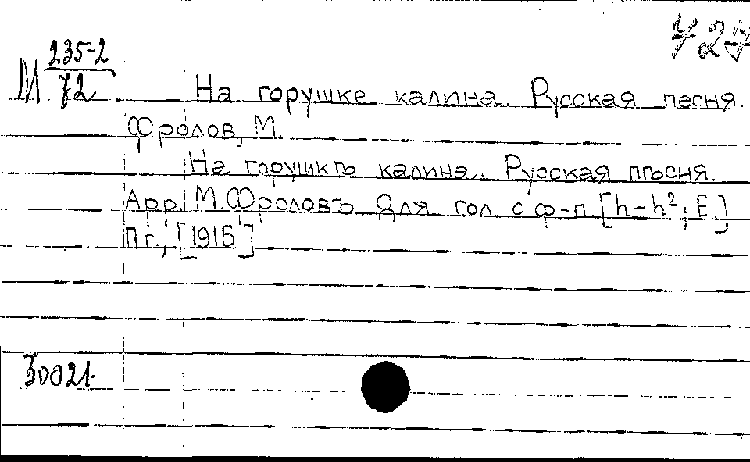 727
М 235-2
72
На горушке калина. Русская песня.
Фролов, М.
На горушкѣ калина. Русская пѣсня.
Арр. М. Фроловъ. Для гол. с ф-п. [h-h²; E]
Пг., [1915]
30021